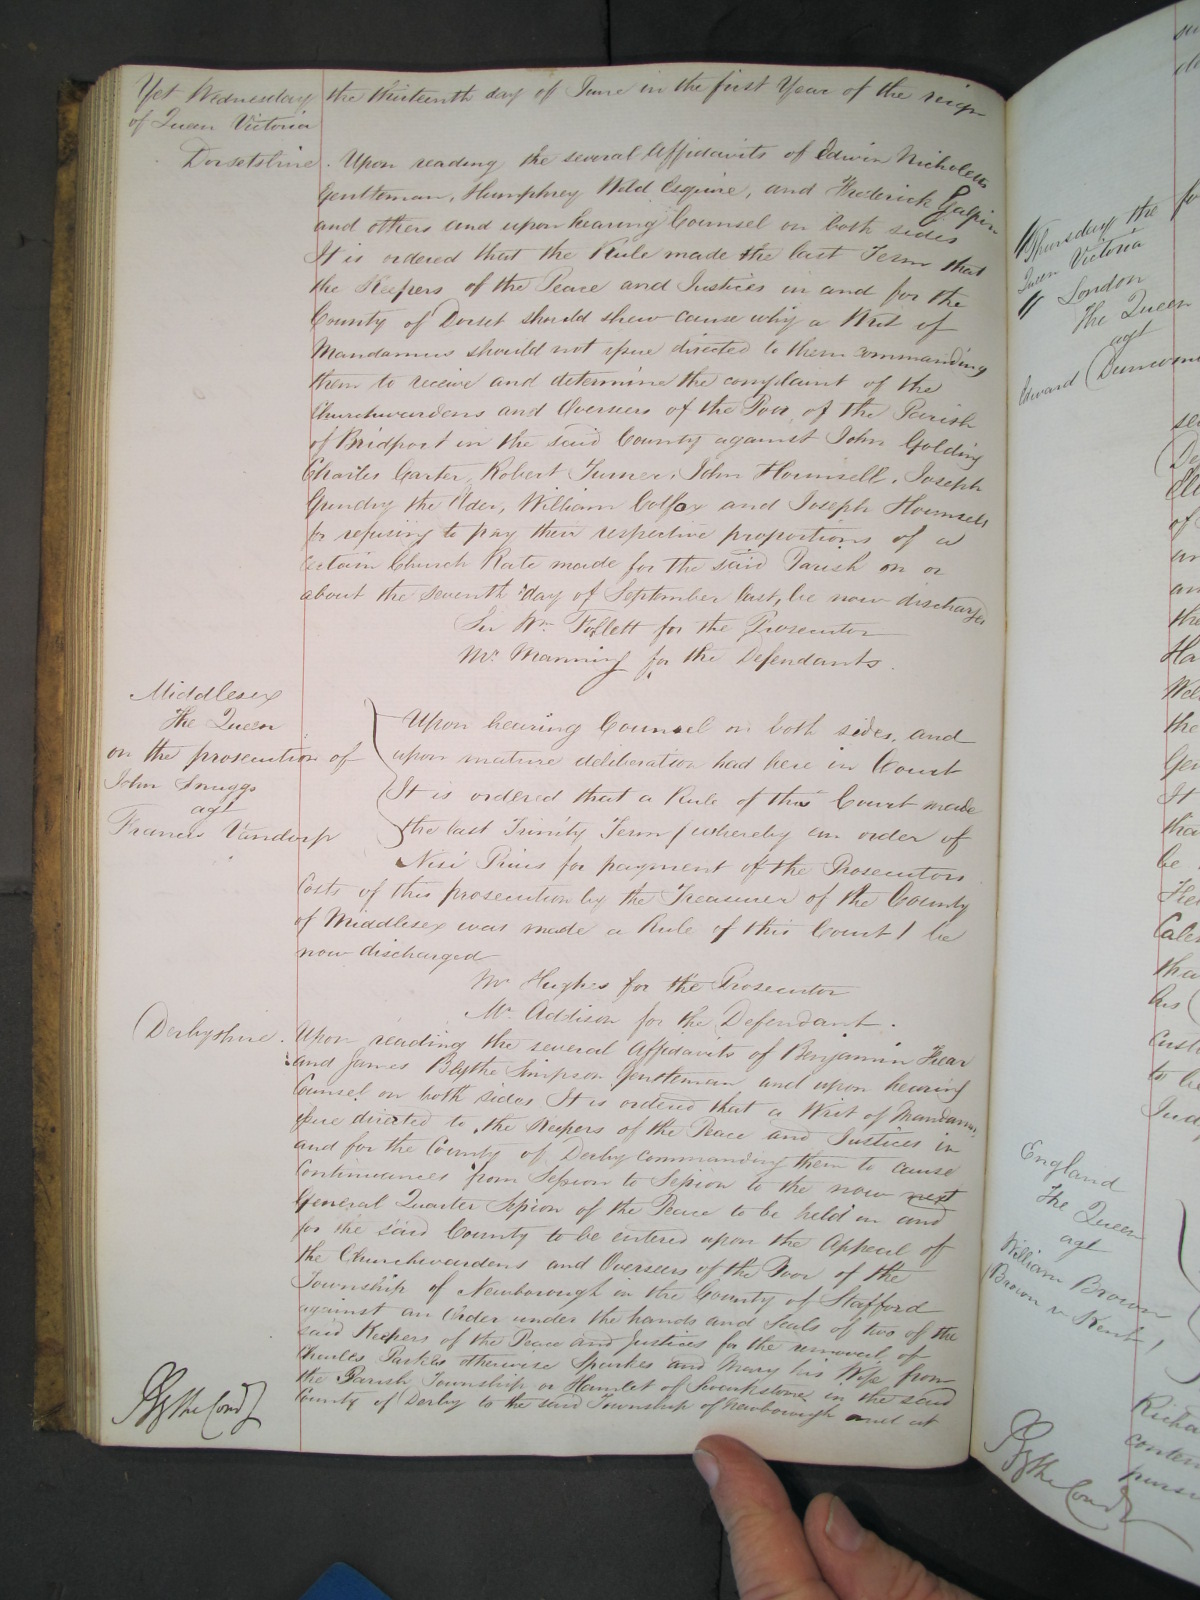 Yet Wednesday the thirteenth day of June in the first Year of the reign
of Queen Victoria
Dorsetshire. Upon reading the several Affidavits of Edwin Nicholetts
Gentleman, Humphrey Weld Esquire, and Frederick Galpin
and others and upon hearing Counsel on both sides
It is ordered that the Rule made the last Term that
the Keepers of the Peace and Justices in and for the
County of Dorset should shew cause why a Writ of
Mandamus should not issue directed to them commanding
them to receive and determine the complaint of the
Churchwardens and Overseers of the Poor of the Parish
of Bridport in the said County against John Golding
Charles Carter, Robert Turner, John Hounsell, Joseph
Gundry the Elder, William Colfox and Joseph Hounsell
for refusing to pay their respective proportions of a
certain Church Rate made for the said Parish on or
about the seventh day of September last, be now discharged
Sir Wm. Follett for the Prosecutor
Mr. Manning for the Defendants.
Middlesex
The Queen
on the prosecution of
John Snuggs
agt
Francis Vandorp
Upon hearing Counsel on both sides, and
upon mature deliberation had here in Court
It is ordered that a Rule of this Court made
the last Trinity Term (whereby an order of
Nisi Prius for payment of the Prosecutors
Costs of this prosecution by the Treasurer of the County
of Middlesex was made a Rule of this Court) be
now discharged
Mr Hughes for the Prosecutor
Mr. Addison for the Defendant.
Derbyshire. Upon reading the several Affidavits of Benjamin Frear
and James Blythe Simpson Gentleman and upon hearing
Counsel on both sides It is ordered that a Writ of Mandamus
issue directed to the Keepers of the Peace and Justices in
and for the County of Derby commanding them to cause
Continuances from Session to Session to the now next
General Quarter Session of the Peace to be held in and
for the said County to be entered upon the Appeal of
the Churchwardens and Overseers of the Poor of the
Township of Newborough in the County of Stafford
against an Order under the hands and Seals of two of the
said Keepers of the Peace and Justices for the removal of
Charles Parkes otherwise Sparkes and Mary his Wife from
the Parish Township or Hamlet of Swarkstone in the said
County of Derby to the said Township of Newborough and at
By the Court
Thursday the
Queen Victoria
London
The Queen
agt
Edward
England
The Queen
agt
William Brown
Brown v Kent
By the Court